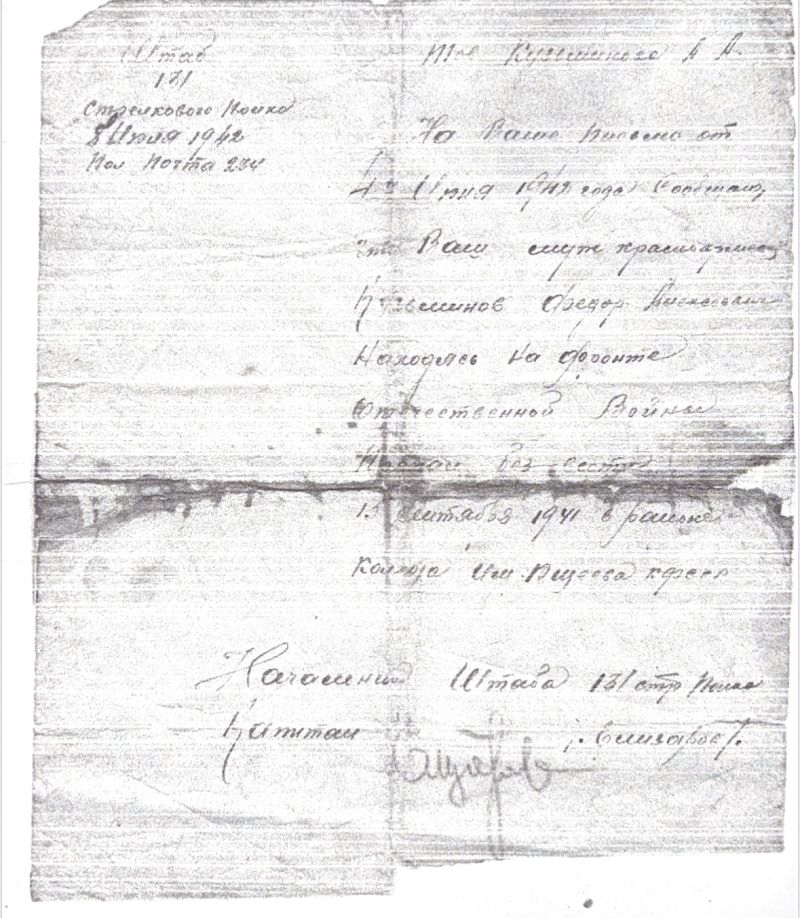 Штаб
131
Стрелкового Полка
8 Июля 1942
Пол Почта 234
Кузьминова А А.
На Ваше письмо от
Июня 1942 года Сообщаю,
что Ваш муж красноармеец
Кузьминов Федор Алексеевич
Находясь на фронте
Отечественной Войны
Пропал без вести
Сентября 1941 в районе
Колхоза Им.
Начальник Штаба 131 стр Полка
Капитан